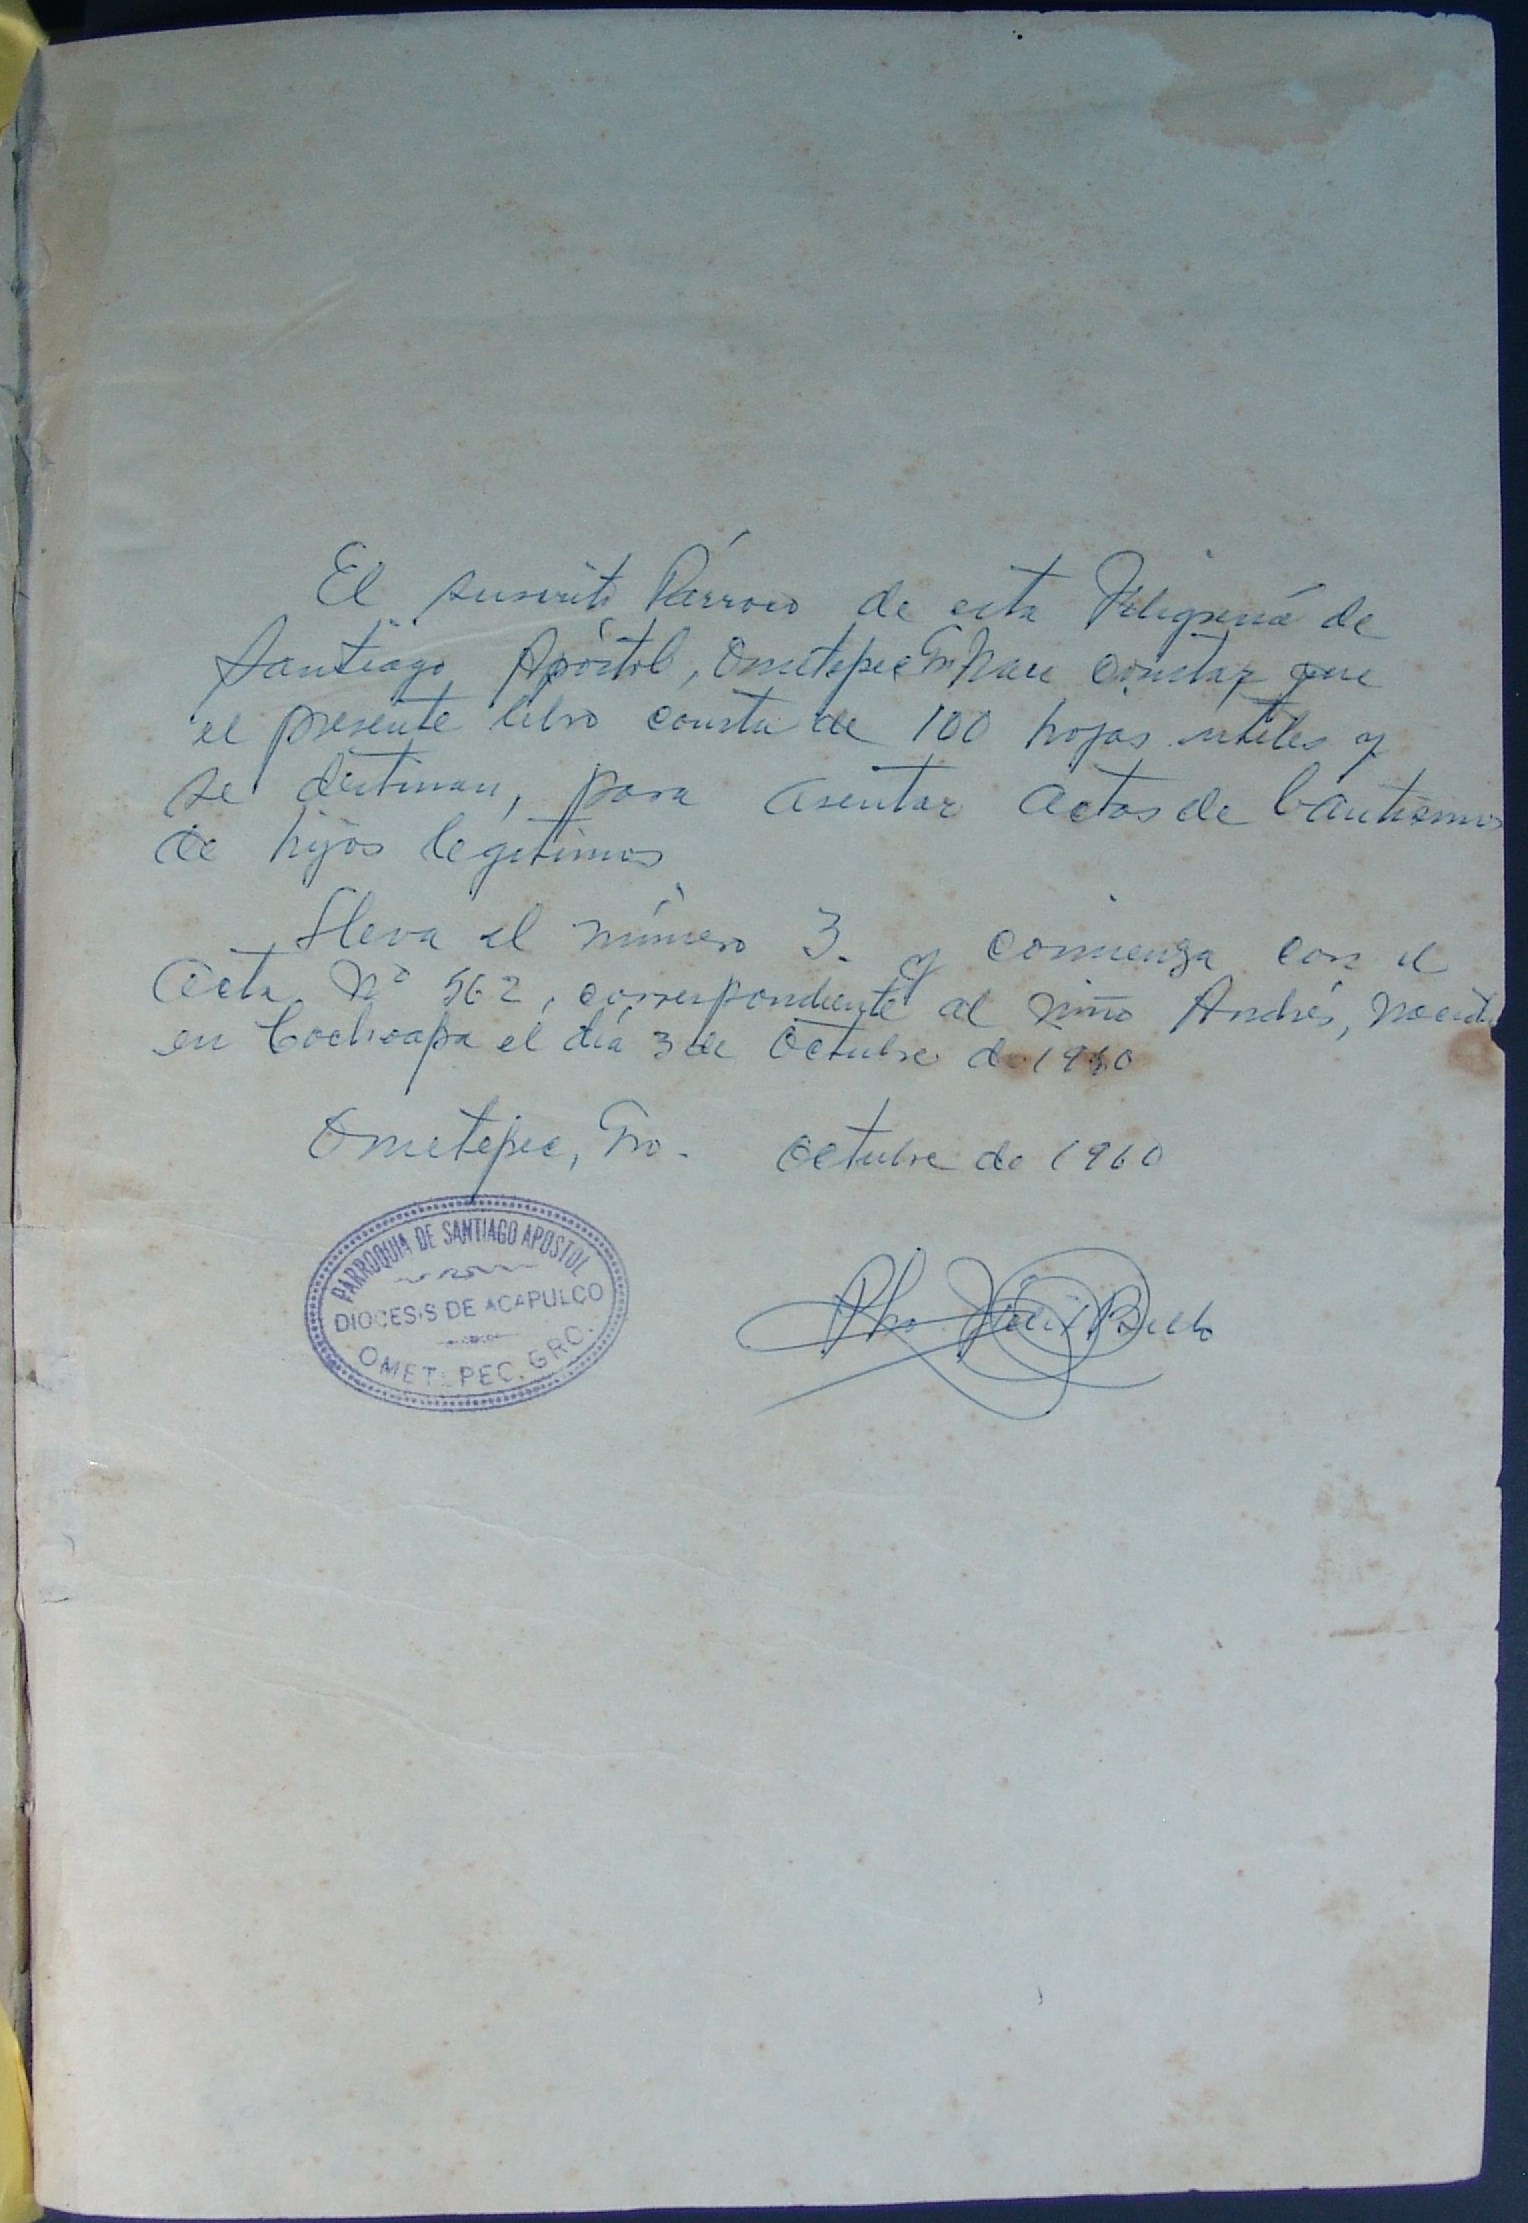 El suscrito Párroco de esta Feligresía de
Santiago Apóstol, Ometepec Gro hace constar que
el presente libro consta de 100 hojas utiles y
se destinan, para asentar actas de bautismos
de hijos legitimos
Lleva el número 3. y comienza con el
acta Nº 562, correspondiente al niño Andrés, nacido
en Cochoapa el día 3 de Octubre de 1960
Ometepec, Gro. Octubre de 1960
PARROQUIA DE SANTIAGO APOSTOL
DIOCESIS DE ACAPULCO
OMETEPEC, GRO.
Pbo. Félix Bello